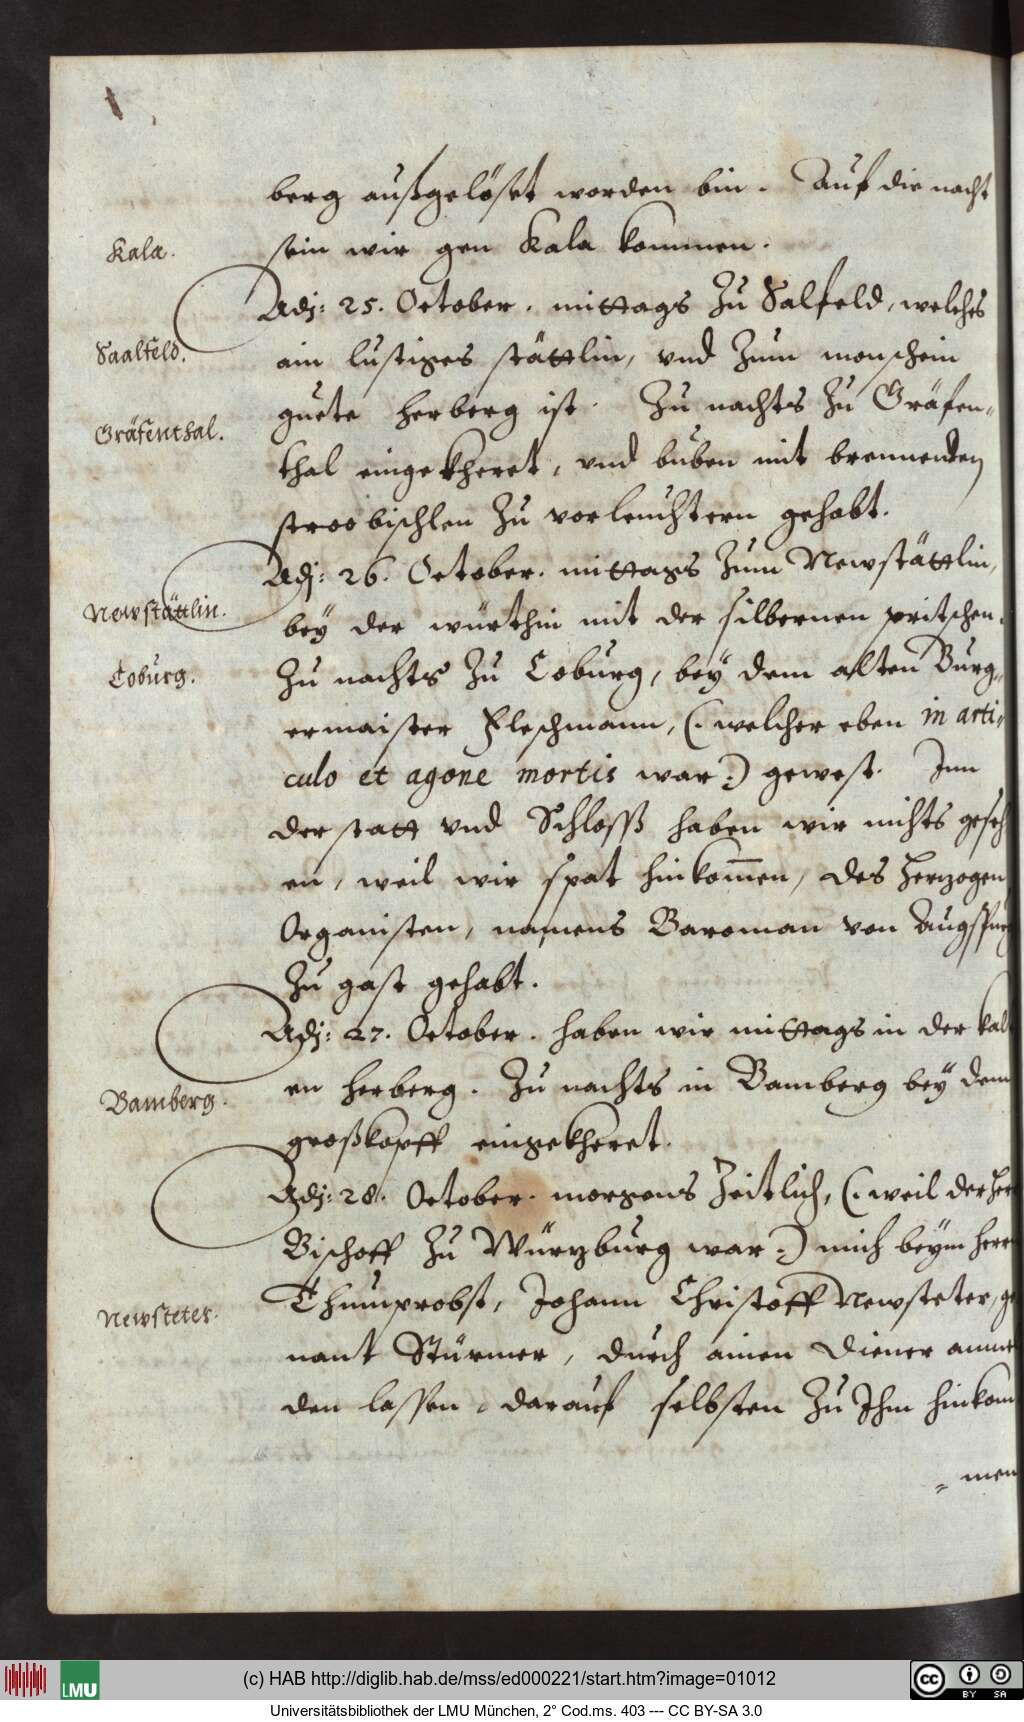 berg außgelöset worden bin. Auf die nacht
Kala.
sein wir gen Kala kommen.
Adj: 25. October. mittags Zu Salfeld, welches
Saalfeld.
ain lustiges stättlin, vnd Zum monschein
guete herberg ist. Zu nachts Zu Gräfen-
Gräfenthal.
thal eingekheret, vnd buben mit brennenden
stroobischlen Zu vorleuchtern gehabt.
Adj: 26. October. mittags Zum Newstättlin,
Newstättlin.
bey der würthin mit der silbernen pritschen.
Zu nachts Zu Coburg, bey dem alten Burg-
Coburg.
ermaister Fleschmann, (. welcher eben in arti-
culo et agone mortis war .) gewest. Inn
der statt vnd Schloss haben wir nichts geseh
en, weil wir spat hinkom̅en, des Herzogen
Organisten, namens Baroman von Augspurg
Zu gast gehabt.
Adj: 27. October. haben wir mittags in der kalt
en herberg. Zu nachts in Bamberg bey dem
Bamberg.
großkopff eingekheret.
Adj: 28. October. morgens Zeitlich, (. weil der Herr
Bischoff Zu Würzburg war .) mich beym herrn
Thumprobst, Johann Christoff Newsteter, ge
Newsteter.
nant Stürmer, durch ainen Diener anmel
den lassen, darauf selbsten Zu Ihm hinkom
= men
(c) HAB http://diglib.hab.de/mss/ed000221/start.htm?image=01012
LMU
CC BY SA
Universitätsbibliothek der LMU München, 2° Cod.ms. 403 --- CC BY-SA 3.0